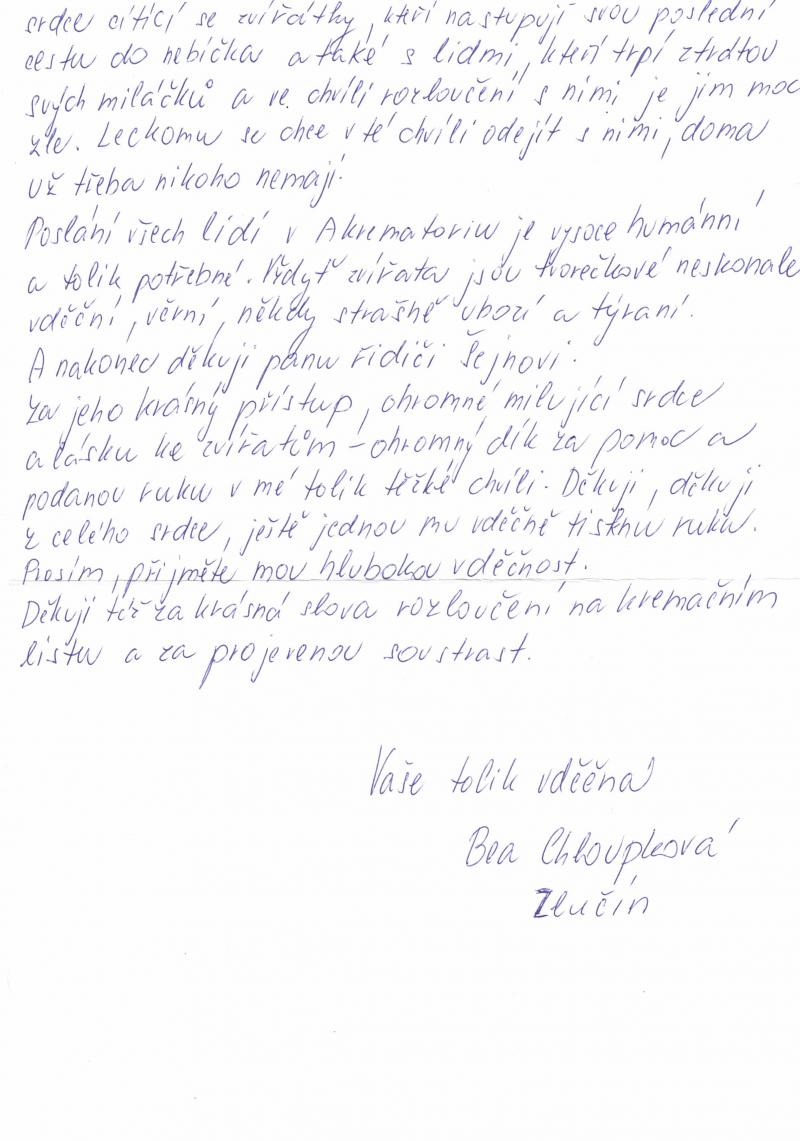 srdce cítící se zvířátky, kteří nastupují svou poslední
cestu do nebíčka a také s lidmi, kteří trpí ztrátou
svých miláčků a ve chvíli rozloučení s nimi je jim moc
zle. Leckomu se chce v té chvíli odejít s nimi, doma
už třeba nikoho nemají.
Poslání všech lidí v Akrematoriu je vysoce humánní
a tolik potřebné. Vždyť zvířata jsou tvorečkové neskonale
vděční, věrní, někdy strašně ubozí a týraní.
A nakonec děkuji panu řidiči Šejnovi.
Za jeho krásný přístup, ohromné milující srdce
a lásku ke zvířatům – ohromný dík za pomoc a
podanou ruku v mé tolik těžké chvíli. Děkuji, děkuji
z celého srdce, ještě jednou mu vděčně tisknu ruku.
Prosím, přijměte mou hlubokou vděčnost.
Děkuji též za krásná slova rozloučení na kremačním
listu a za projevenou soustrast.
Vaše tolik vděčná
Bea Chloupková
Zlučín